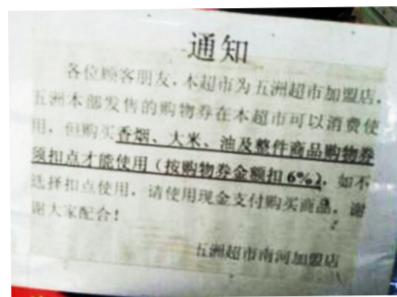 通知
各位顾客朋友,本超市为五洲超市加盟店,
五洲本部发售的购物券在本超市可以消费使
用,但购买香烟、大米、油及整件商品购物券
须扣点才能使用(按购物券金额扣6%),如不
选择扣点使用,请使用现金支付购买商品,谢
谢大家配合!
五洲超市南河加盟店